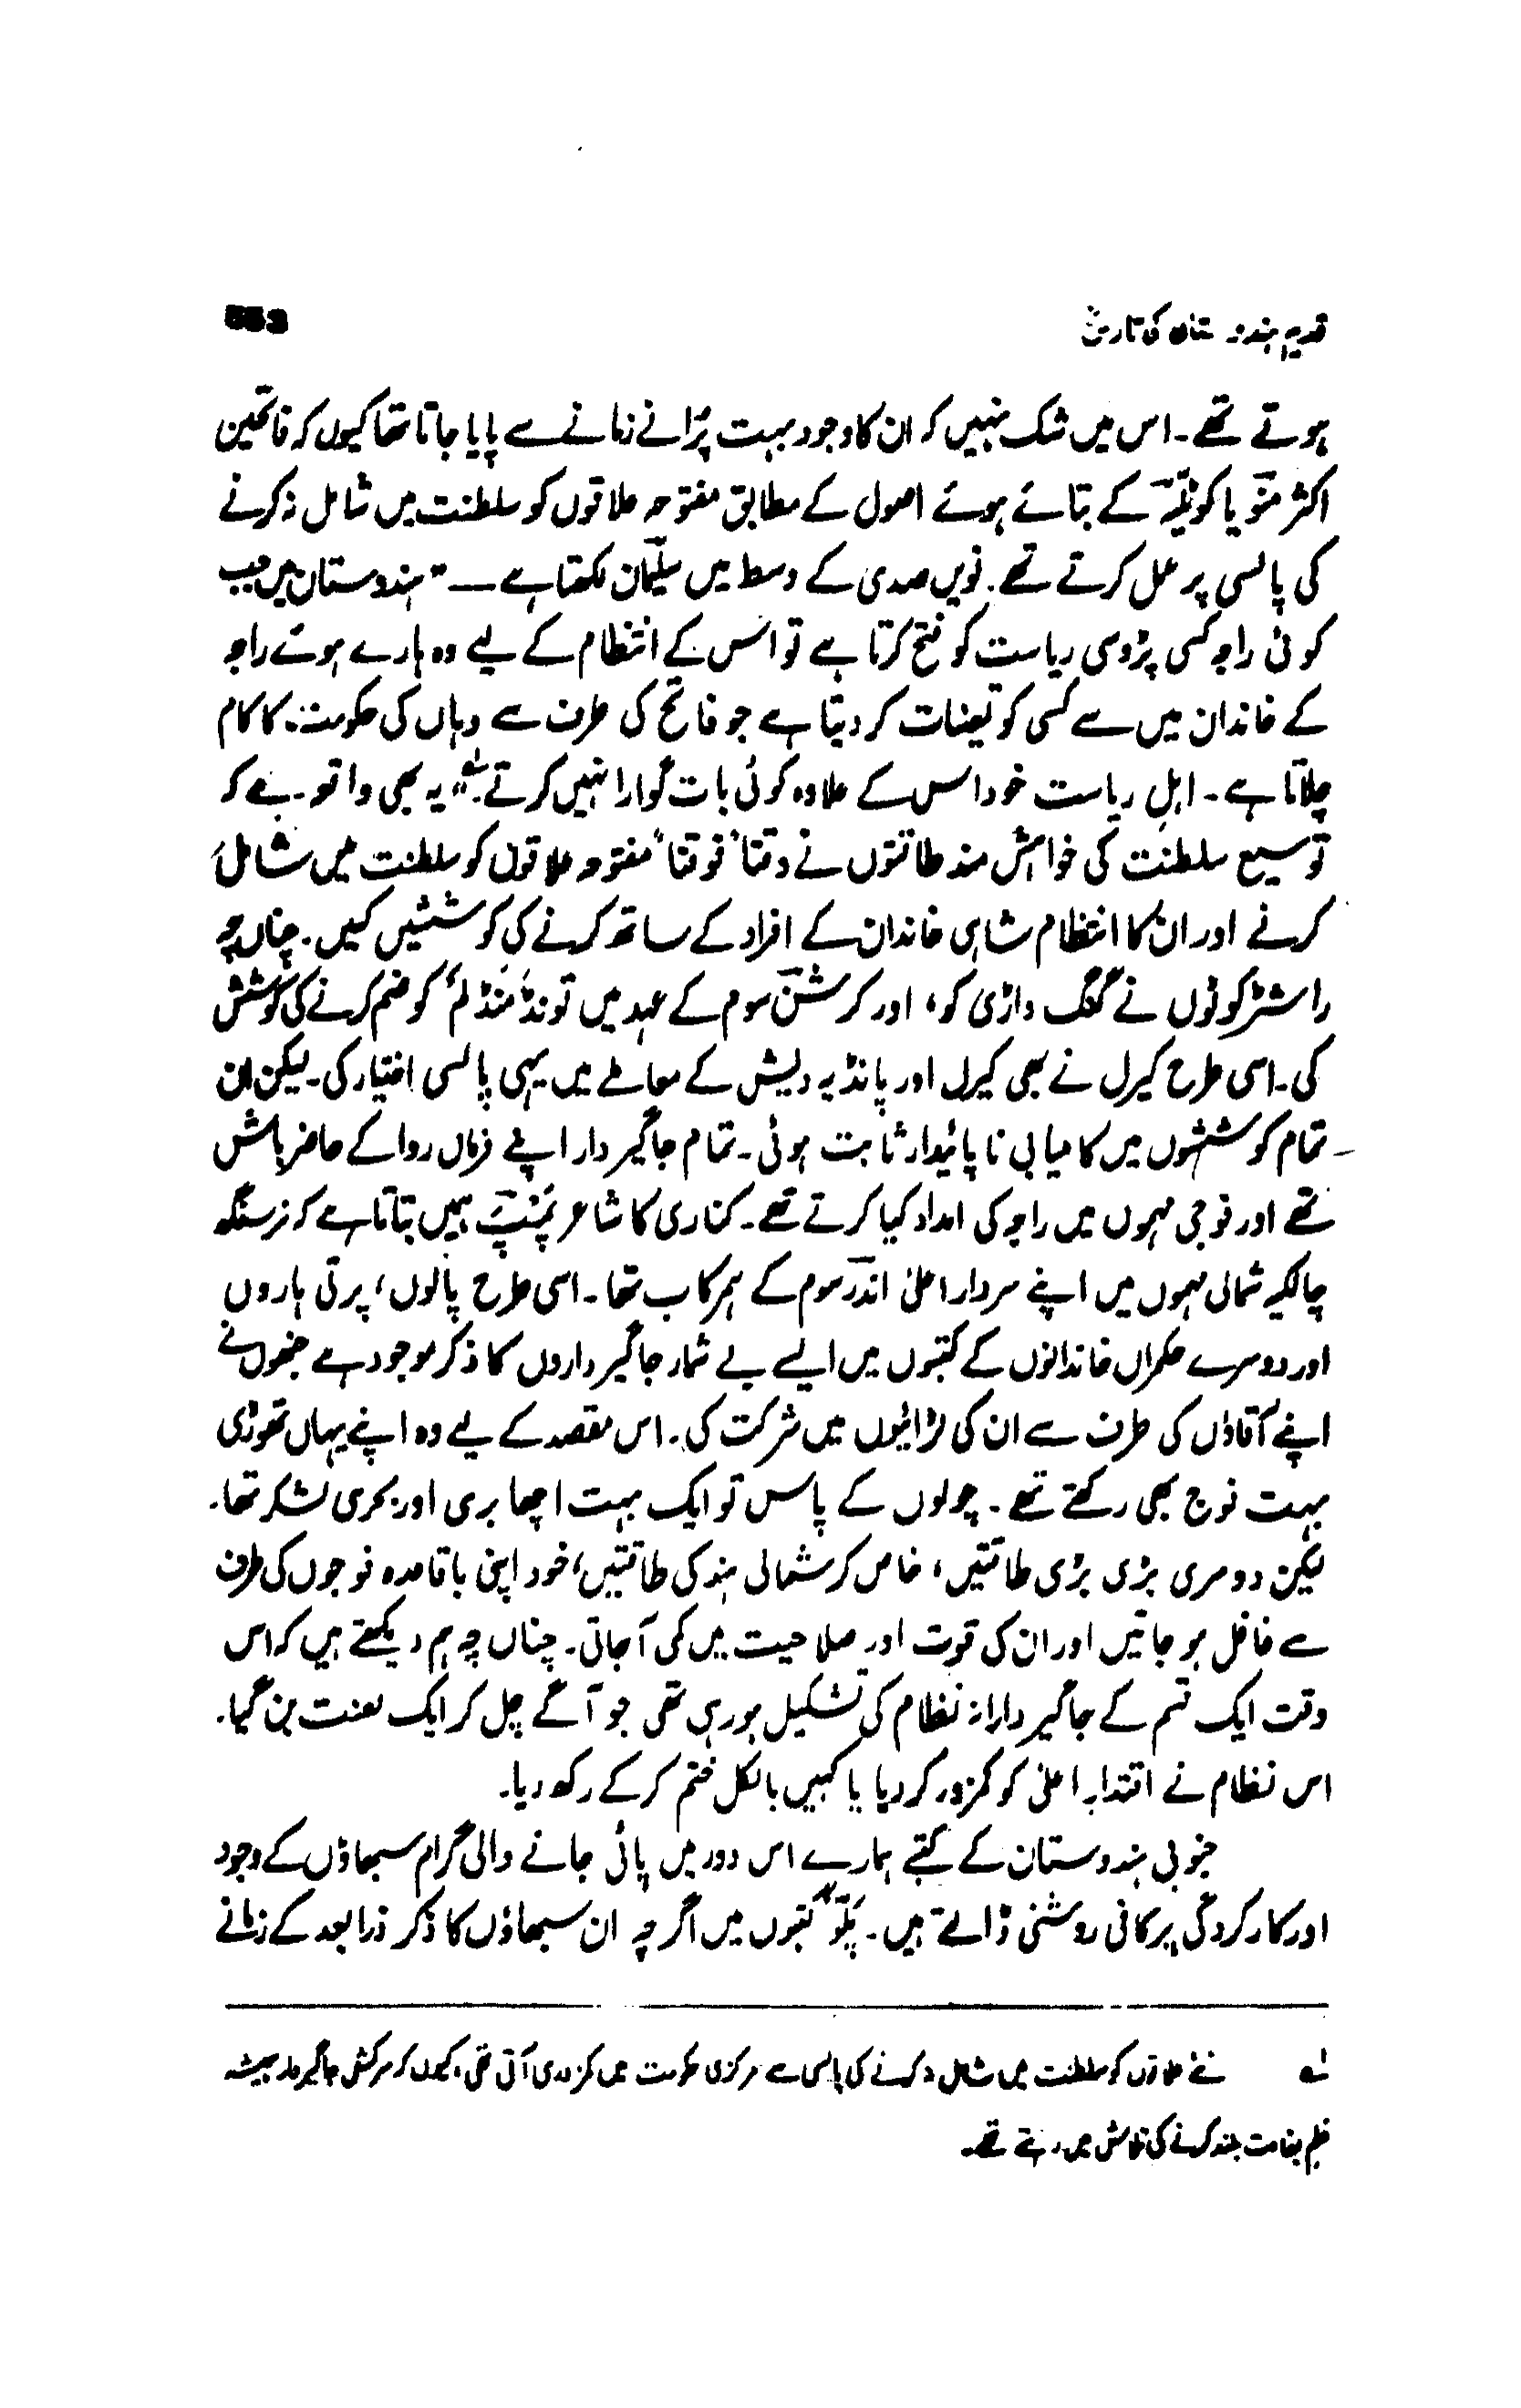 قدیم ہندوستان کی تاریخ
553
ہوتے تھے۔ اس میں شک نہیں کہ ان کا وجود بہت پُرانے زمانے سے پایا جاتا تھا کیوں کہ فاتحین
اکثر منوؔ یا کوٹلیہؔ کے بتائے ہوئے اصول کے مطابق مفتوحہ علاقوں کو سلطنت میں شامل نہ کرنے
کی پالسی پر عمل کرتے تھے۔ نویں صدی کے وسط میں سلیمان لکھتا ہے — "ہندوستان میں جب
کوئی راجہ کسی پڑوسی ریاست کو فتح کرتا ہے تو اس کے انتظام کے لیے وہ ہارے ہوئے راجہ
کے خاندان میں سے کسی کو تعینات کر دیتا ہے جو فاتح کی طرف سے وہاں کی حکومت کا کام
چلاتا ہے۔ اہلِ ریاست خود اس کے علاوہ کوئی بات گوارا نہیں کرتے"۔؎۱ یہ بھی واقعہ ہے کہ
توسیع سلطنت کی خواہش مند طاقتوں نے وقتاً فوقتاً مفتوحہ علاقوں کو سلطنت میں شامل
کرنے اور ان کا انتظام شاہی خاندان کے افراد کے ساتھ کرنے کی کوششیں کیں۔ چناں چہ
راشٹرکوٹوں نے گنگ واڑی کو، اور کرشنؔ سوم کے عہد میں تونڈمَنڈلم کو ضم کرنے کی کوشش
کی۔ اسی طرح کیرل نے بھی کیرل اور پانڈیہ دیش کے معاملے میں یہی پالسی اختیار کی۔ لیکن ان
تمام کوششوں میں کامیابی ناپائیدار ثابت ہوئی۔ تمام جاگیردار اپنے فرماں روا کے حاضر باش
تھے اور فوجی مہموں میں راجہ کی امداد کیا کرتے تھے۔ کناری کا شاعر پمپؔ ہمیں بتاتا ہے کہ نرسنگھ
چالکیہ شمالی مہموں میں اپنے سردار اعلیٰ اندرؔ سوم کے ہمرکاب تھا۔ اسی طرح پالوں، پرتی ہاروں
اور دوسرے حکمراں خاندانوں کے کتبوں میں ایسے بے شمار جاگیرداروں کا ذکر موجود ہے جنھوں نے
اپنے آقاؤں کی طرف سے ان کی لڑائیوں میں شرکت کی۔ اس مقصد کے لیے وہ اپنے یہاں تھوڑی
بہت فوج بھی رکھتے تھے۔ چولوں کے پاس تو ایک بہت اچھا بری اور بحری لشکر تھا۔
لیکن دوسری بڑی بڑی طاقتیں، خاص کر شمالی ہند کی طاقتیں، خود اپنی باقاعدہ فوجوں کی طرف
سے غافل ہو جاتیں اور ان کی قوت اور صلاحیت میں کمی آجاتی۔ چناں چہ ہم دیکھتے ہیں کہ اس
وقت ایک قسم کے جاگیردارانہ نظام کی تشکیل ہو رہی تھی جو آگے چل کر ایک لعنت بن گیا۔
اس نظام نے اقتدارِ اعلیٰ کو کمزور کر دیا یا کہیں بالکل ختم کر کے رکھ دیا۔
جنوبی ہندوستان کے کتبے ہمارے اس دور میں پائی جانے والی گرام سبھاؤں کے وجود
اور کارکردگی پر کافی روشنی ڈالتے ہیں۔ پلّو کتبوں میں اگرچہ ان سبھاؤں کا ذکر ذرا بعد کے زمانے
؎۱ نئے علاقوں کو سلطنت میں شامل نہ کرنے کی پالسی سے مرکزی حکومت میں کمزوری آتی تھی، کیوں کہ سرکش جاگیردار ہمیشہ
علم بغاوت بلند کرنے کی تلاش میں رہتے تھے۔